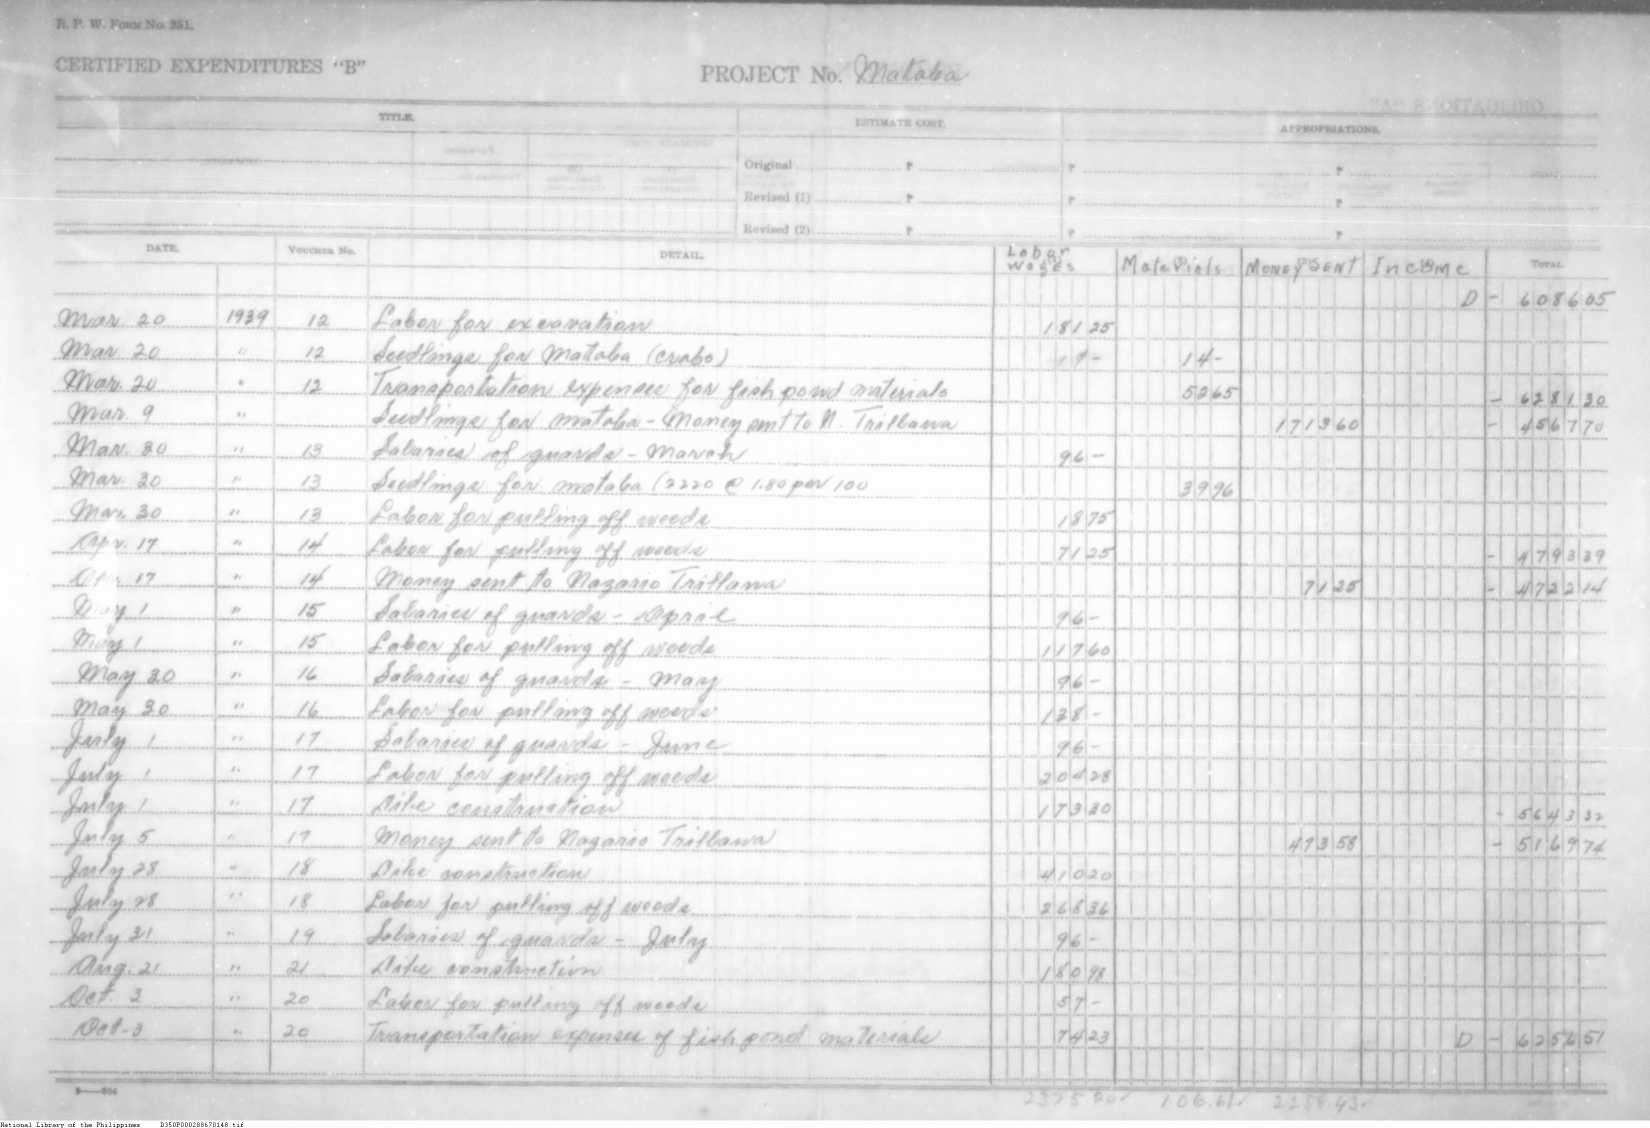 B. P. W. Form No. 251.
CERTIFIED EXPENDITURES "B"
PROJECT No. Mataba
OBLIGATIONS "A"
TITLE. ESTIMATE COST. APPROPRIATIONS.
Original ₱ ₱ ₱
Revised (1) ₱ ₱ ₱
Revised (2) ₱ ₱ ₱
DATE. VOUCHER No. DETAIL. Labor Wages Materials Money Sent Income TOTAL
D - 608605
Mar. 20 1939 12 Labor for excavation 18125
Mar. 20 " 12 Seedlings for Mataba (crabo) 14-
Mar. 20 " 12 Transportation expenses for fish pond materials 5265 - 628130
Mar. 9 " Seedlings for mataba - Money sent to N. Trillana 171360 - 456770
Mar. 30 " 13 Salaries of guards - March 96-
Mar. 30 " 13 Seedlings for mataba (2220 @ 1.80 per 100 3996
Mar. 30 " 13 Labor for pulling off weeds 1875
Apr. 17 " 14 Labor for pulling off weeds 7125 - 479339
Apr. 17 " 14 Money sent to Nazario Trillana 7125 - 472214
May 1 " 15 Salaries of guards - April 96-
May 1 " 15 Labor for pulling off weeds 11760
May 30 " 16 Salaries of guards - May 96-
May 30 " 16 Labor for pulling off weeds 138-
July 1 " 17 Salaries of guards - June 96-
July 1 " 17 Labor for pulling off weeds 20428
July 1 " 17 Dike construction 17330 - 564332
July 5 " 17 Money sent to Nazario Trillana 47358 - 516974
July 28 " 18 Dike construction 41020
July 28 " 18 Labor for pulling off weeds 26836
July 31 " 19 Salaries of guards - July 96-
Aug. 21 " 21 Dike construction 18098
Oct. 3 " 20 Labor for pulling off weeds 57-
Oct. 3 " 20 Transportation expenses of fish pond materials 7423 D - 625651
106.61 2258.43
National Library of the Philippines D350P000288670148 tif